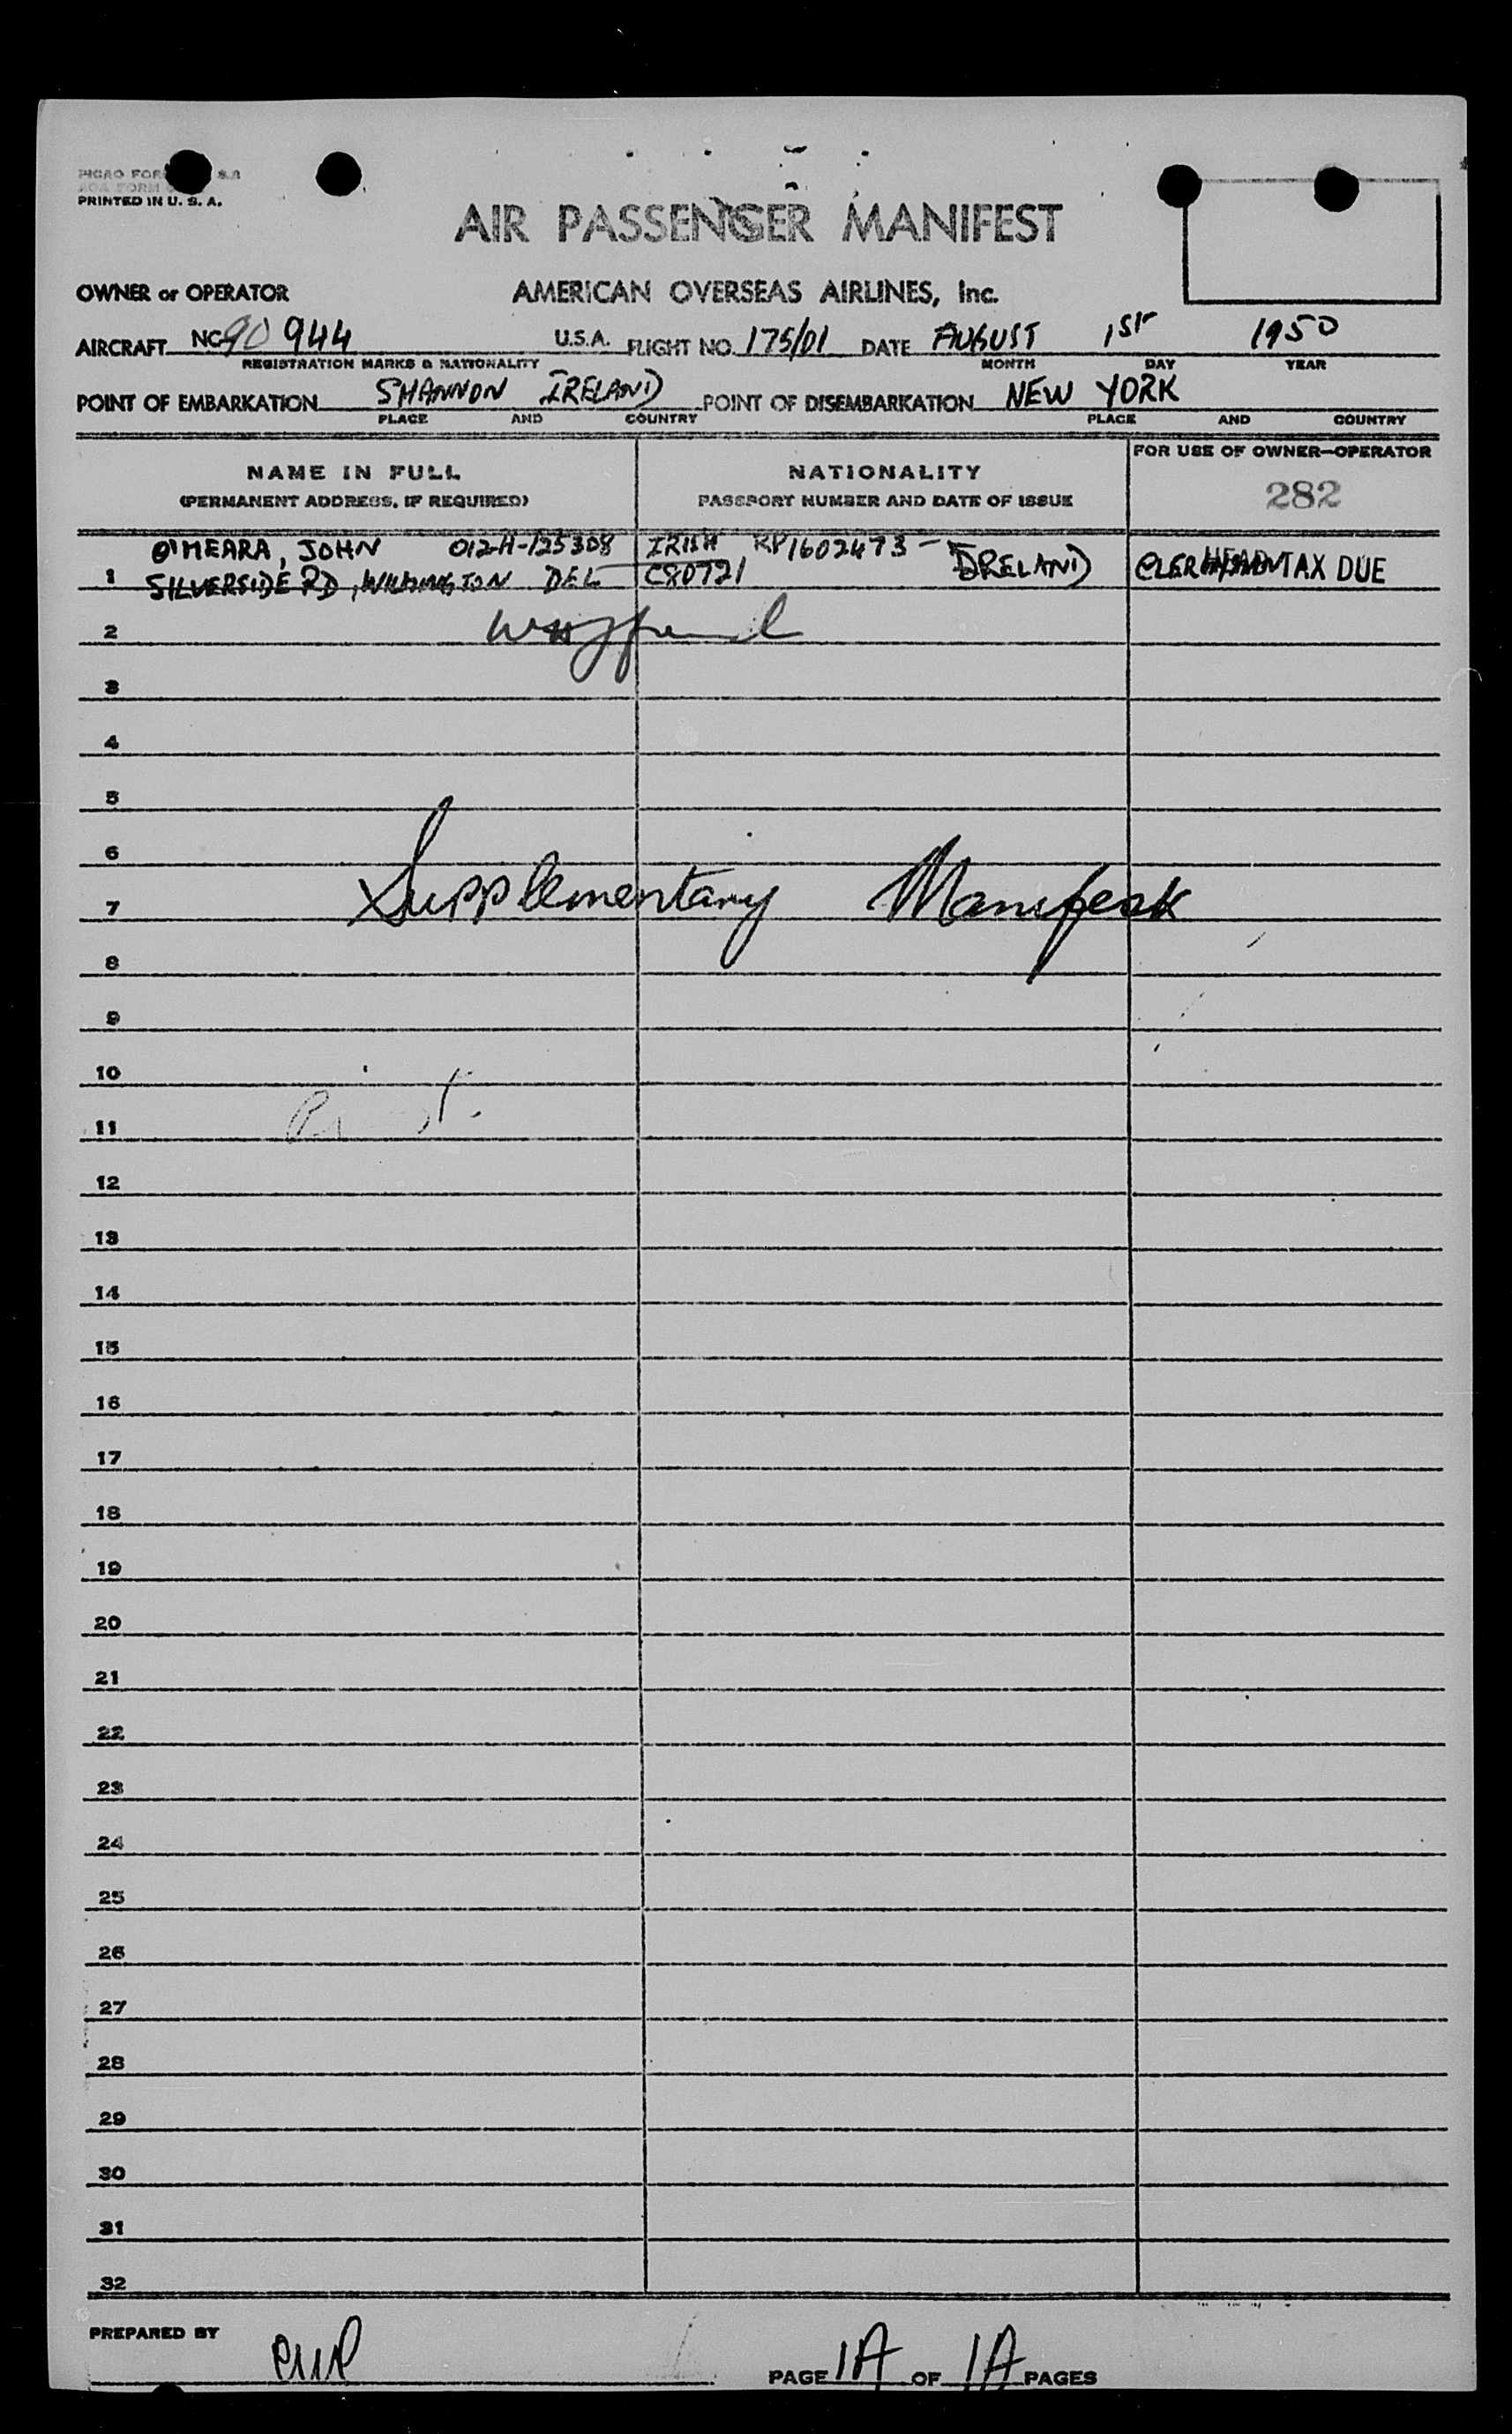 PRINTED IN U. S. A.
AIR PASSENGER MANIFEST
OWNER or OPERATOR AMERICAN OVERSEAS AIRLINES, Inc.
AIRCRAFT NC 90 944 U.S.A. FLIGHT NO. 175/01 DATE AUGUST 1ST 1950
REGISTRATION MARKS & NATIONALITY MONTH DAY YEAR
POINT OF EMBARKATION SHANNON IRELAND POINT OF DISEMBARKATION NEW YORK
PLACE AND COUNTRY PLACE AND COUNTRY
NAME IN FULL NATIONALITY FOR USE OF OWNER-OPERATOR
(PERMANENT ADDRESS, IF REQUIRED) PASSPORT NUMBER AND DATE OF ISSUE 282
O'MEARA, JOHN 012H-125308 IRISH RP1602473 - IRELAND
1 SILVERSIDE RD, WILMINGTON DEL C80721 HEAD TAX DUE
2
3
4
5
6
7 Supplementary Manifest
8
9
10
11
12
13
14
15
16
17
18
19
20
21
22
23
24
25
26
27
28
29
30
31
32
PREPARED BY PAGE 1A OF 1A PAGES